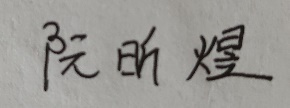 阮昕煜